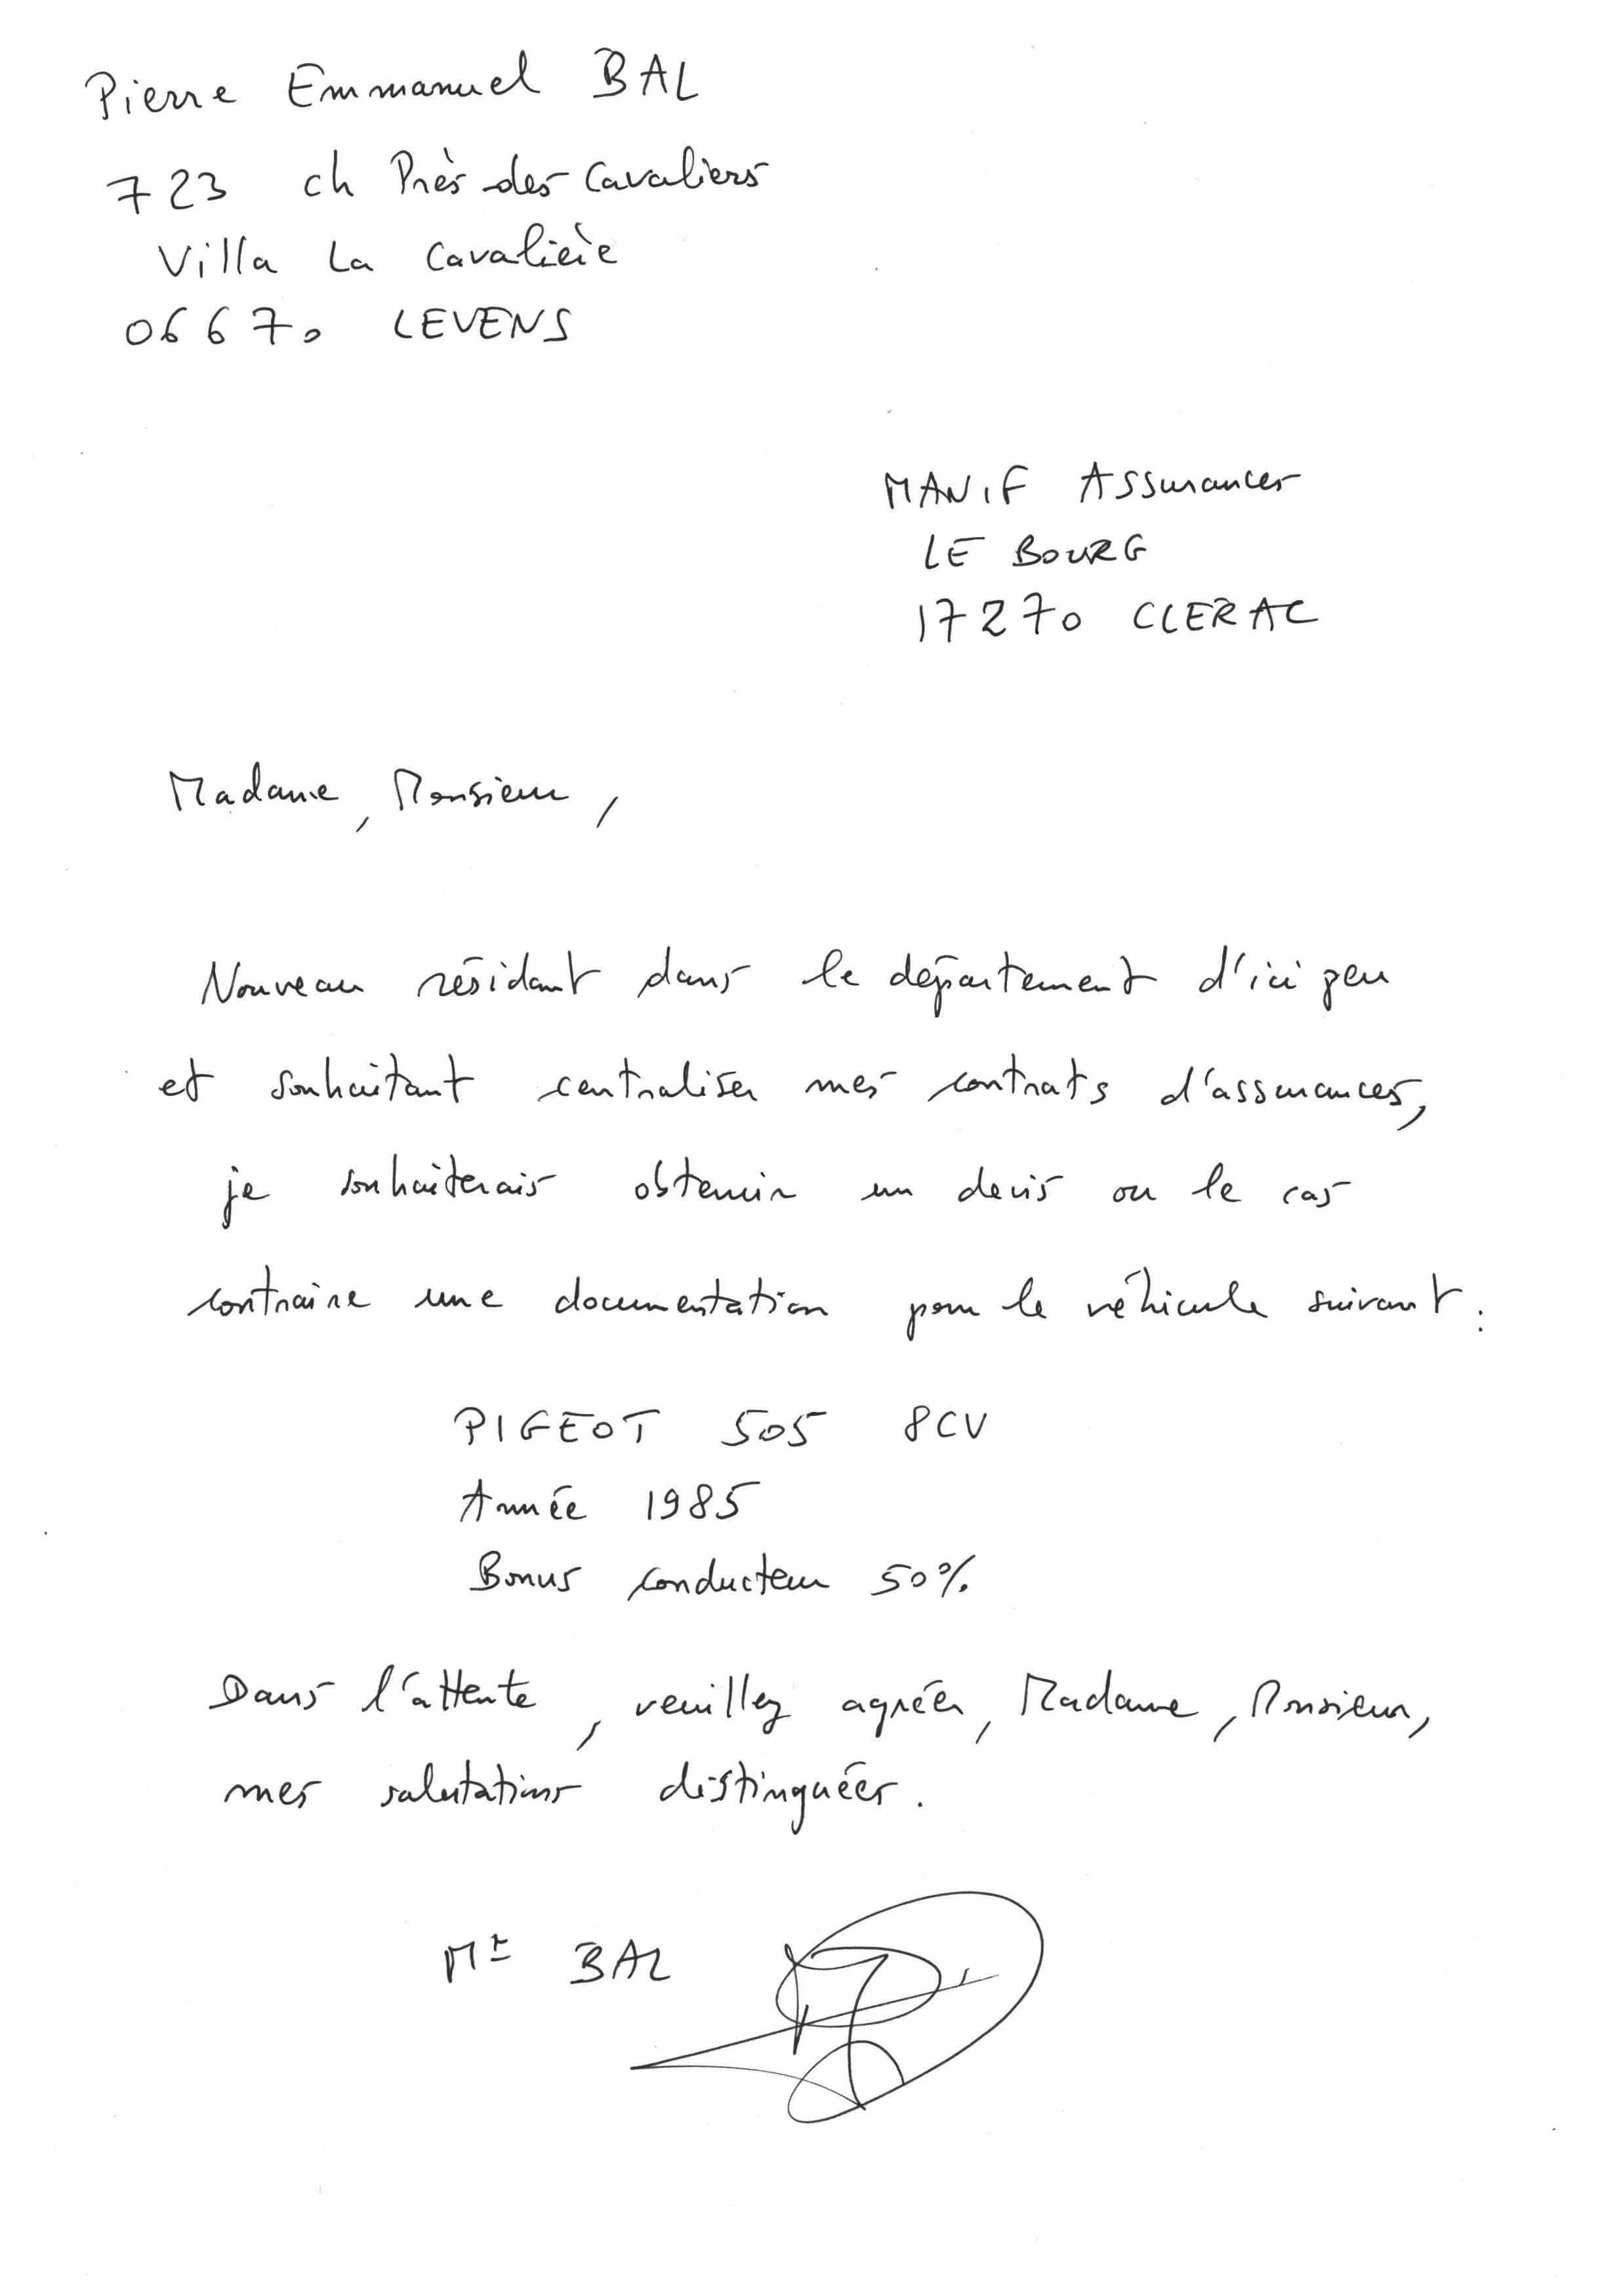 Pierre Emmanuel BAL
723 ch Près des Cavaliers
Villa La Cavalière
06670 LEVENS
MANIF Assurances
LE BOURG
17270 CLERAC
Madame, Monsieur,
Nouveau résidant dans le département d'ici peu
et souhaitant centraliser mes contrats d'assurances,
je souhaiterais obtenir un devis ou le cas
contraire une documentation pour le véhicule suivant :
PIGEOT 505 8CV
Année 1985
Bonus conducteur 50%
Dans l'attente, veuillez agréer, Madame, Monsieur,
mes salutations distinguées.
Mr BAL